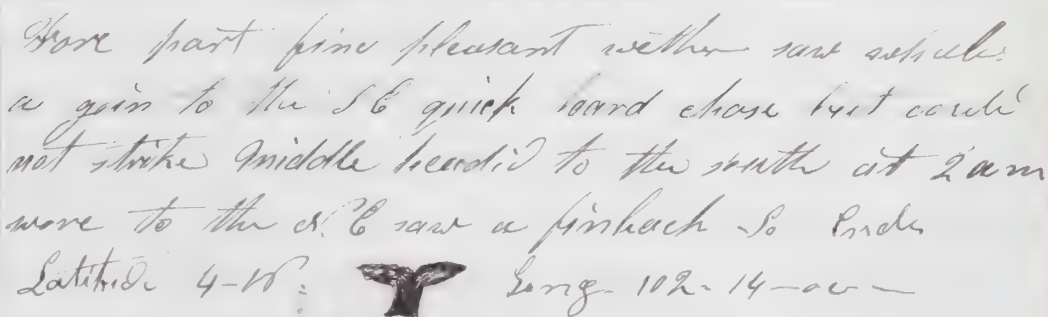 Fore part fine pleasant wether saw whales
a goin to the SE quick hard chase but could
not strike Middle headid to the south at 2 am
wore to the N. E saw a finback So Ends
Latitude 4- Long- 102-14-00-